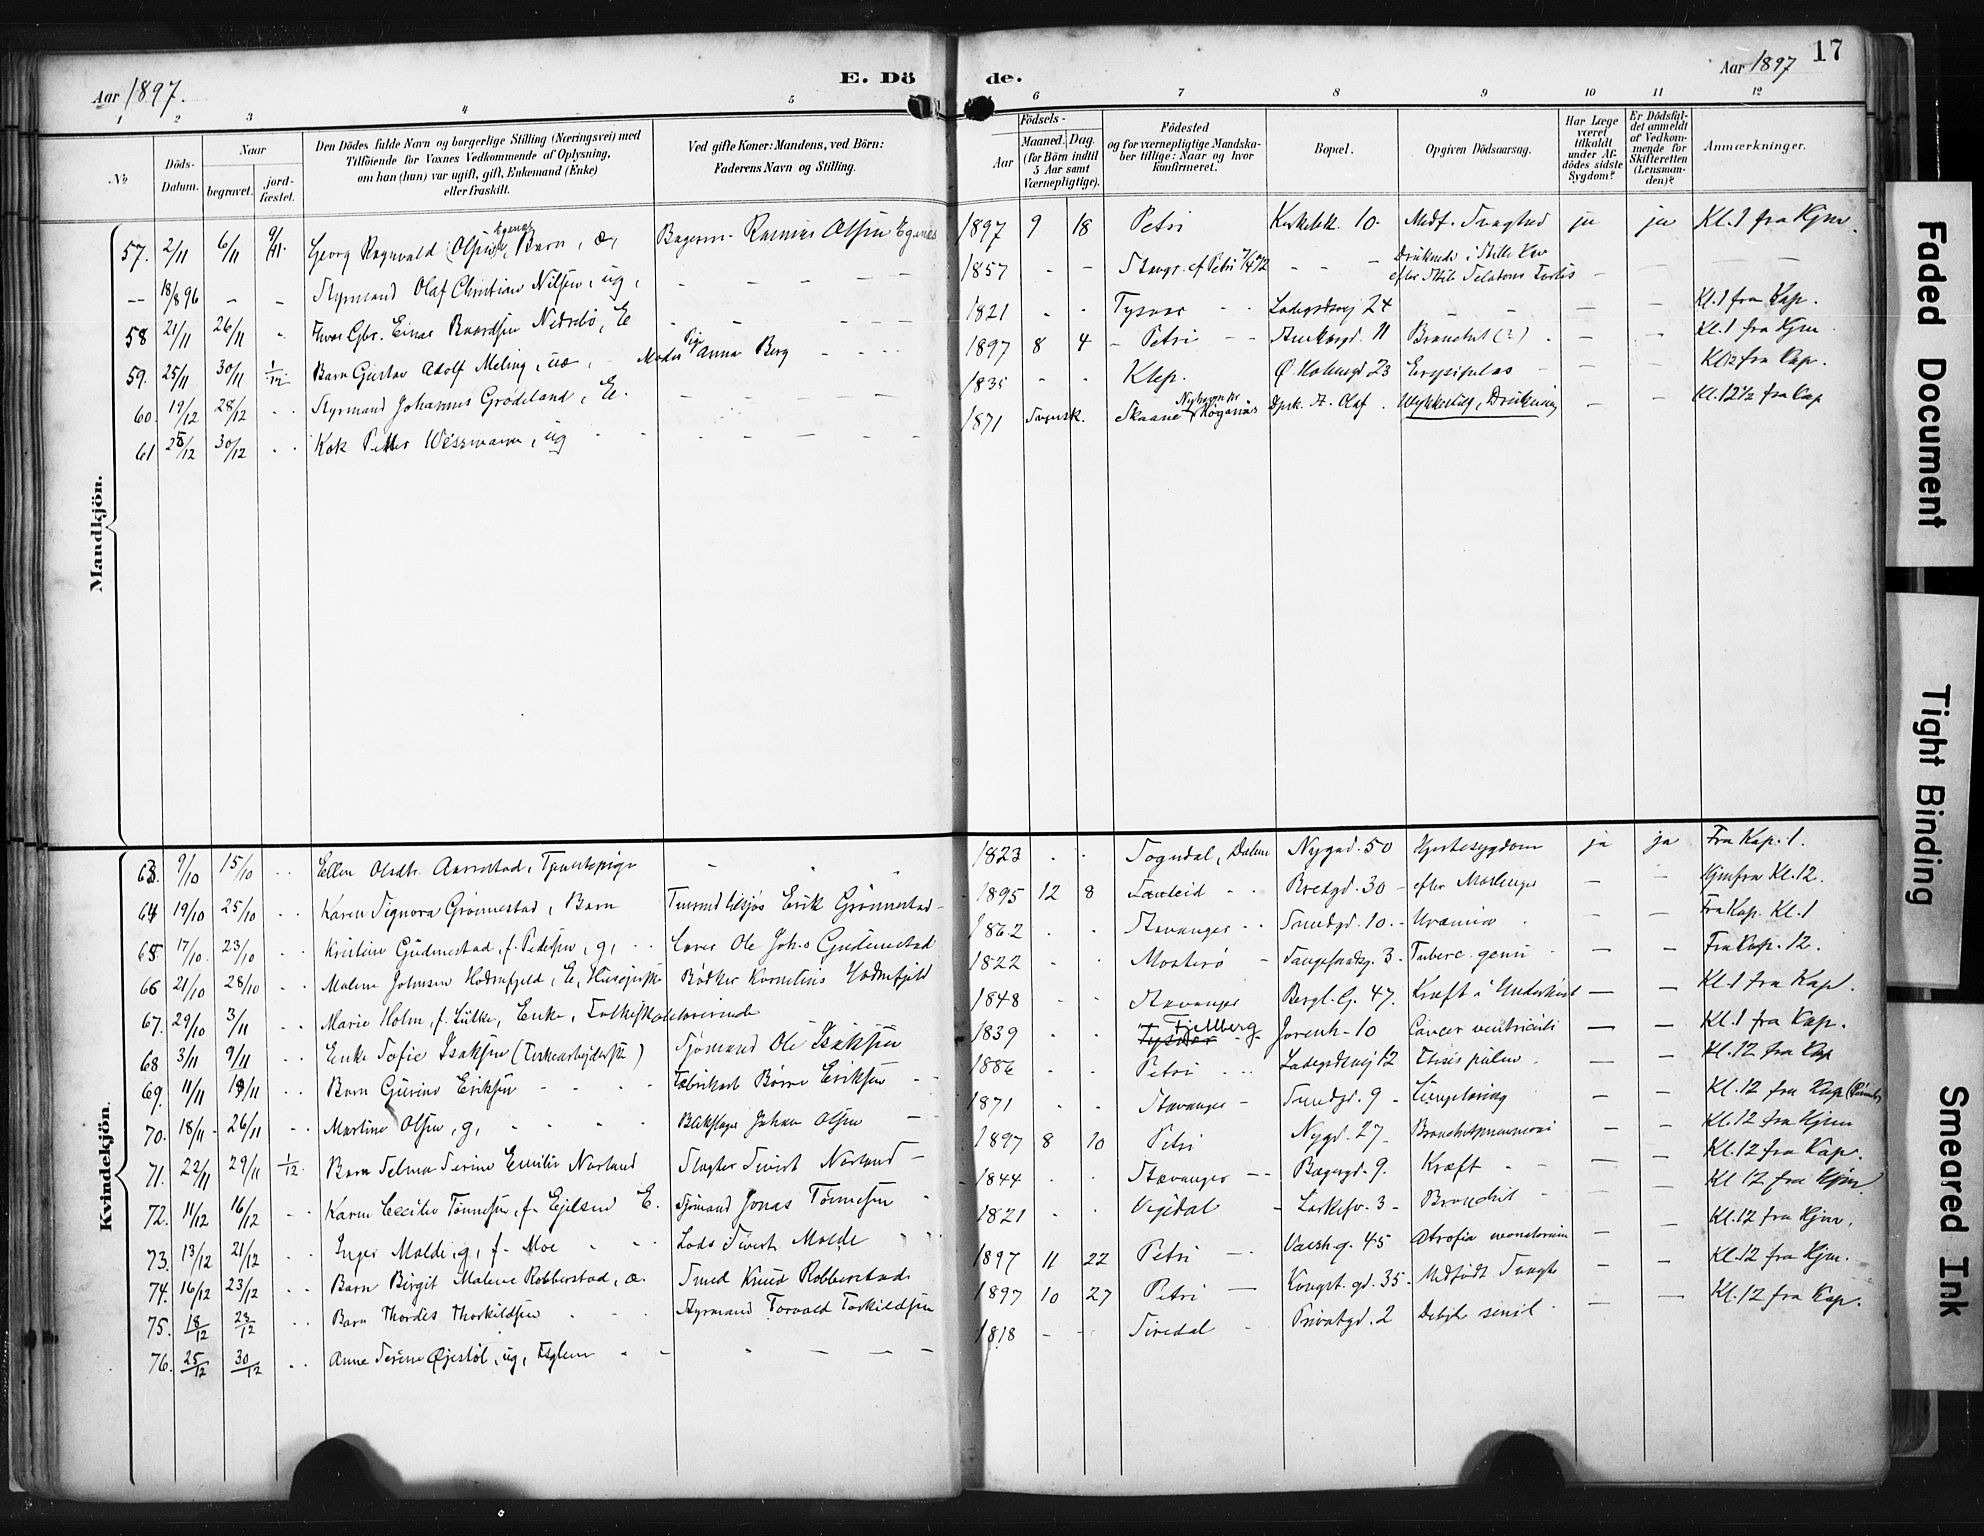 Aar 1897.
E. Dö
de.
Aar 1897
17
1 2 3 4 5 6 7 8 9 10 11 12
No
Döds-Datum.
Naar
begravet.
jord-fæstet.
Den Dödes fulde Navn og borgerlige Stilling (Næringsvei) med
Tilföiende for Voxnes Vedkommende af Oplysning,
om han (hun) var ugift, gift, Enkemand (Enke)
eller fraskilt.
Ved gifte Koner: Mandens, ved Börn:
Faderens Navn og Stilling.
Födsels-
Aar
Maaned. Dag.
(for Börn indtil
5 Aar samt
Værnepligtige).
Födested
og for værnepligtige Mandska-
ber tillige: Naar og hvor
konfirmeret.
Bopæl.
Opgiven Dödsaarsag.
Har Læge
været
tilkaldt
under Af-
dödes sidste
Sygdom?
Er Dödsfal-
det anmeldt
af Vedkom-
mende for
Skifteretten
(Lensman-
den)?
Anmærkninger.
Mandkjön.
57. 2/11 6/11 9/11. Georg Ragnvald Olsen Egenæs, Barn, æ, Bagerm. Rasmus Olsen Egenæs 1897 9 18 Petri Kirkebk. 10. Medf. Svaghed ja ja Kl. 1 fra Kjm.
— 18/8 96 – – Styrmand Olaf Christian Nilsen, ug, – – – 1857 – – Stavgr. cf Petri – – –
58 21/11 26/11 " Einar Baardsen Nedrebö, E 1821 Tysvær Ladegrdsvej 24 – – Kl. 1 fra Kap.
59. 25/11 30/11 1/12. Barn Gustav Adolf Meling, uæ, Moder Pige Anna Berg 1897 8 4 Petri 11 Bronchit (?) – – Kl. 1 fra Kjm
60. 19/12 28/12 Styrmand Johannes Grödeland, E. 1835 Klep. Ø. Holmegd 23 Erysipelas – – fra Kap.
61 25/12 30/12 Kok Petter Wessmann, ug 1871 Svensk. Skaane Höganäs Dpsk. St. Olaf. Ulykkestilf, Drukning – – Kl. 12½ fra Kap
Kvindekjön.
63. 9/10 15/10 Ellen Olsdtr. Aarrestad, Tjenestepige 1823 Sogndal, Dalene Nygad. 50 Hjertesygdom ja ja Fra Kap. 1.
64 19/10 25/10 Karen Signora Grönnestad, Barn Erik Grönnestad 1895 12 8 Bredgd. 30 efter Meslinger – – Kjm fra Kl. 12.
65 17/10 23/10 Kristine Gudmestad, f. Pedersen, g, Ole Joh.s Gudmestad 1862 Stavanger Smedgd. 10. Uræmia – – Fra Kap. Kl. 1
66 21/10 28/10 Malene Johnsen Hodnefjeld, E, Bödker Kornelius Hodnefjeld 1822 Mosterö 3 Tuberc. genu – – Fra Kap. 12.
67. 29/10 3/11 Marie Holm, f. Lütke, Enke, Folkeskolelærerinde 1848 Stavanger Bergl. G. 47. Kræft i Underlivet – – Kl. 1 fra Kap.
68 3/11 9/11 Enke Sofie Isaksen Sjömand Ole Isaksen 1839 Fjelberg Jorenh. 10 Cancer ventriculi – – Kl. 1 fra Kap.
69. 11/11 18/11 Barn Gurine Eriksen Fabrikarb Börre Eriksen 1886 Petri Ladegrdsvej 12 Ftisis pulm. – – Kl. 12 fra Kap
70. 18/11 26/11 Martine Olsen, g, Blikslager Johan Olsen 1871 Stavanger Smedgd. 9 – – Kl. 12 fra Kap
71. 22/11 29/11 1/12. Barn Selma Serine Emilie Norland Slagter Sivert Norland 1897 8 10 Petri Nygd. 27 Bronchitpneumoni – – Kl. 12 fra Kjm
72. 11/12 16/12 Karen Cecilie Tönnesen, f. Ejelsen E. Sjömand Jonas Tönnesen 1844 Stavanger Bagergd. 9. Kræft – – Kl. 12 fra Kap.
73. 13/12 21/12 Inger Molde, g, f. Moe Lods Sivert Molde 1821 Vigedal 3 Bronchit – – Kl. 12 fra Kjm.
74. 16/12 23/12 Barn Birgit Malene Robberstad, æ. Smed Knud Robberstad 1897 11 22 Petri Vaish g. 45 Atrofia neonatorum – – Kl. 12 fra Kjm.
75. 18/12 23/12 Barn Thordes Thorkildsen Styrmand Torvald Torkildsen 1897 10 27 Petri Kongst. gd. 35 Medfödt Svagh – – Kl. 12 fra Kjm.
76. 25/12 30/12 Anne Serine Øjestöl, ug, Fsglem 1818 Siredal Privatgd. 2 Debilit. senil. – – Kl. 12 fra Kap.
Faded Document
Tight Binding
Smeared Ink